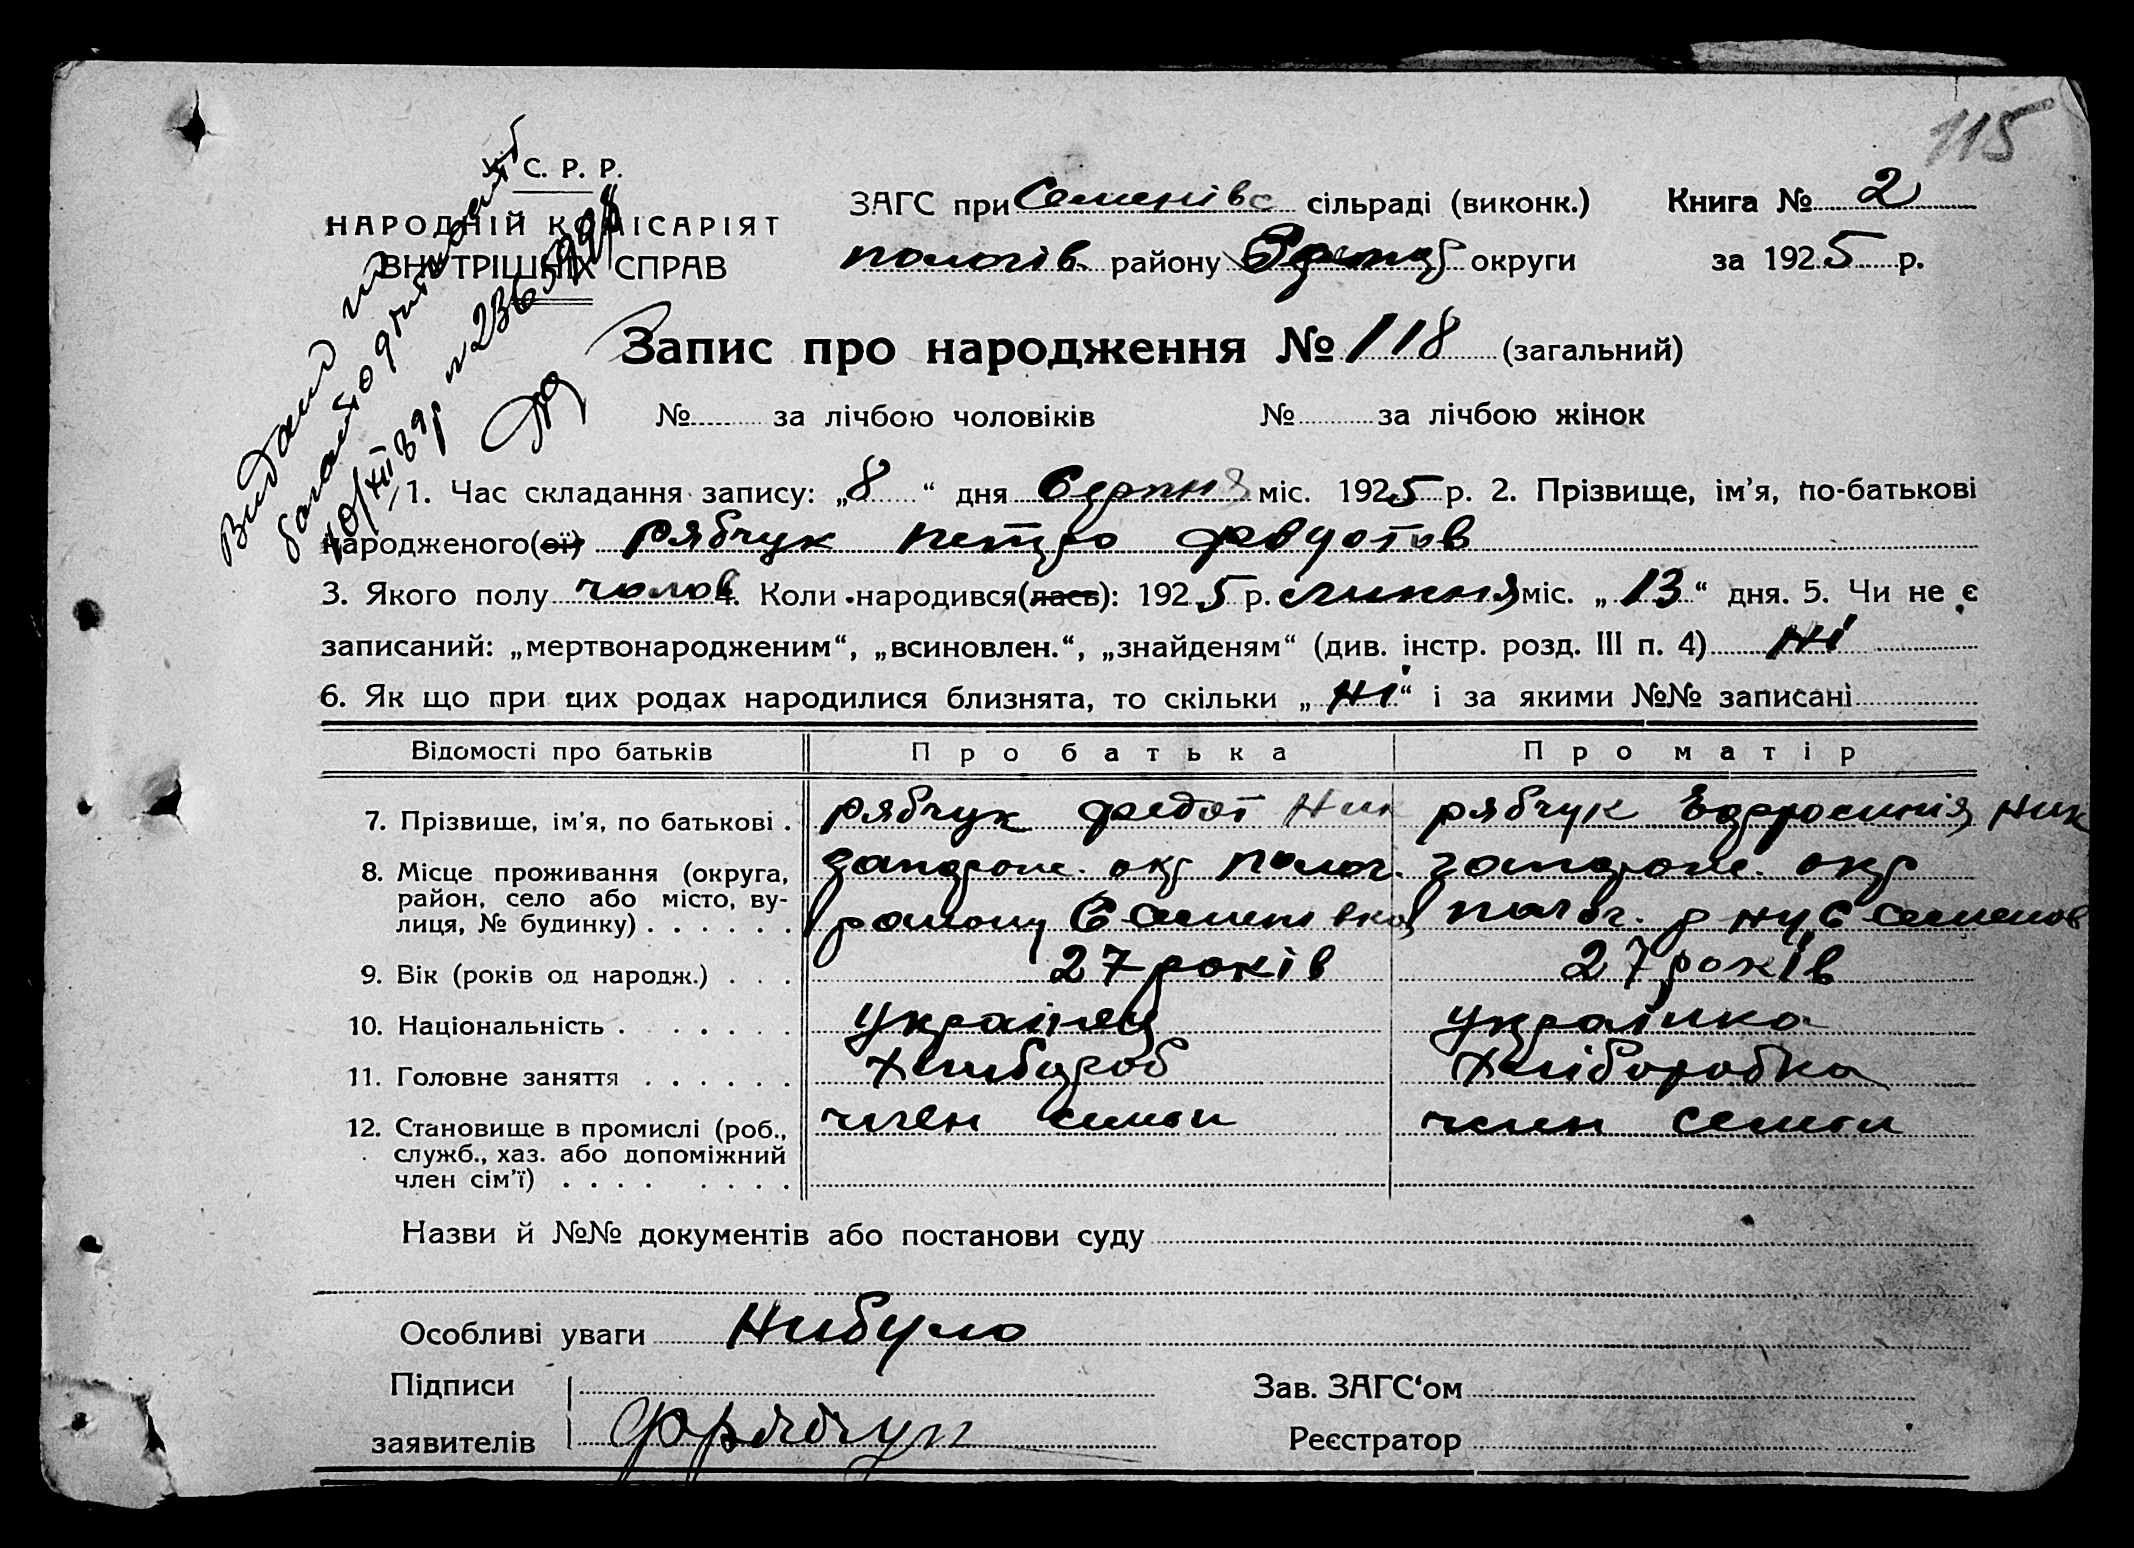 115
У. С. Р. Р.
НАРОДНІЙ КОМІСАРІЯТ
ВНУТРІШНІХ СПРАВ
ЗАГС при Семенівс сільраді (виконк.)
Книга № 2
пологів району округи
за 1925 р.
Запис про народження № 118 (загальний)
№ за лічбою чоловіків № за лічбою жінок
1. Час складання запису: „8“ дня Серпня міс. 1925 р. 2. Прізвище, ім’я, по-батькові
народженого(ої) Рябчук Петро Федотов
3. Якого полу чолов 4. Коли народився(лась): 1925 р. липня міс. „13“ дня. 5. Чи не є
записаний: „мертвонародженим“, „всиновлен.“, „знайденям“ (див. інстр. розд. III п. 4) Ні
6. Як що при цих родах народилися близнята, то скільки „Ні“ і за якими №№ записані
Відомості про батьків Про батька Про матір
7. Прізвище, ім’я, по батькові . рябчук федот Ник рябчук Ник
8. Місце проживання (округа, запорож. окр Полог. запорож. окр
район, село або місто, ву-
лиця, № будинку) . . . . . . району С полог. р ну С семенов
9. Вік (років од народж.) . . . 27 років 27 років
10. Національність . . . . . . українец українка
11. Головне заняття . . . . . . Хлибороб Хліборобка
12. Становище в промислі (роб., член семьи член семьи
служб., хаз. або допоміжний
член сім’ї) . . . . . . . .
Назви й №№ документів або постанови суду
Особливі уваги Нибуло
Підписи
заявителів
Зав. ЗАГС‘ом
Реєстратор